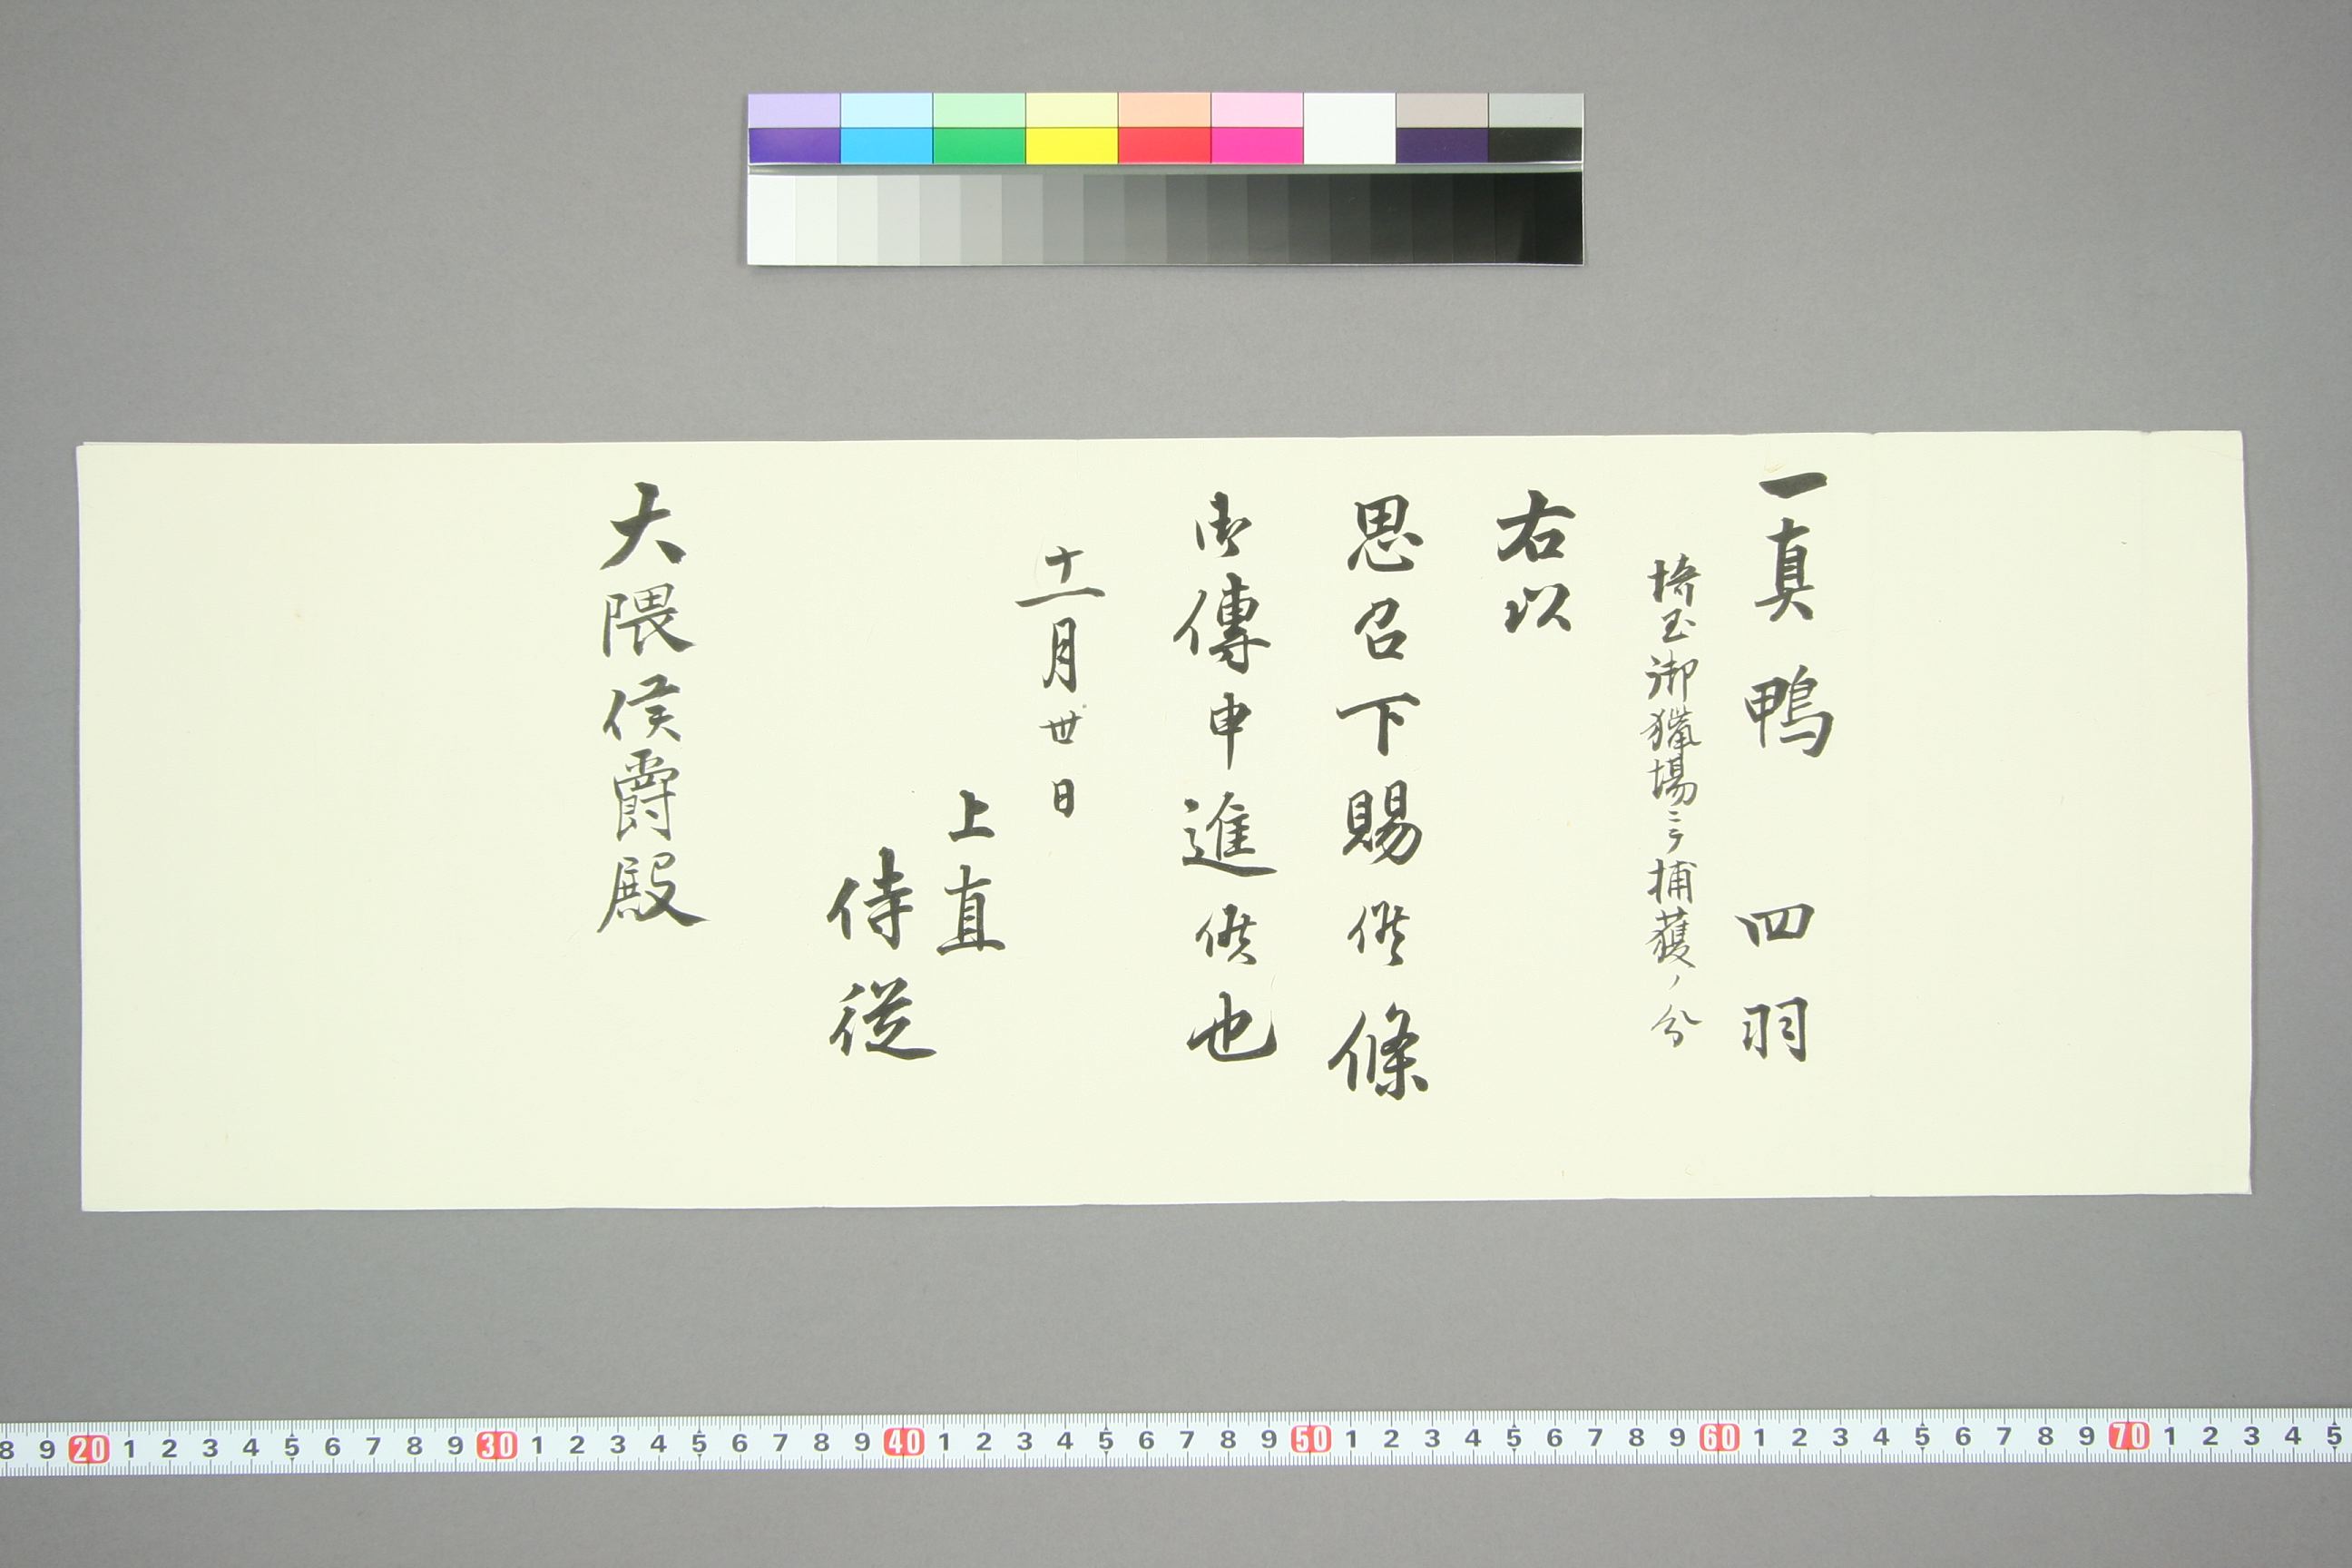 一真鴨 四羽
埼玉御猟場ニテ捕獲ノ分
右以
思召下賜候條
御傳申進候也
十一月卅日
上直
侍従
大隈侯爵殿
8 9 20 1 2 3 4 5 6 7 8 9 30 1 2 3 4 5 6 7 8 9 40 1 2 3 4 5 6 7 8 9 50 1 2 3 4 5 6 7 8 9 60 1 2 3 4 5 6 7 8 9 70 1 2 3 4 5